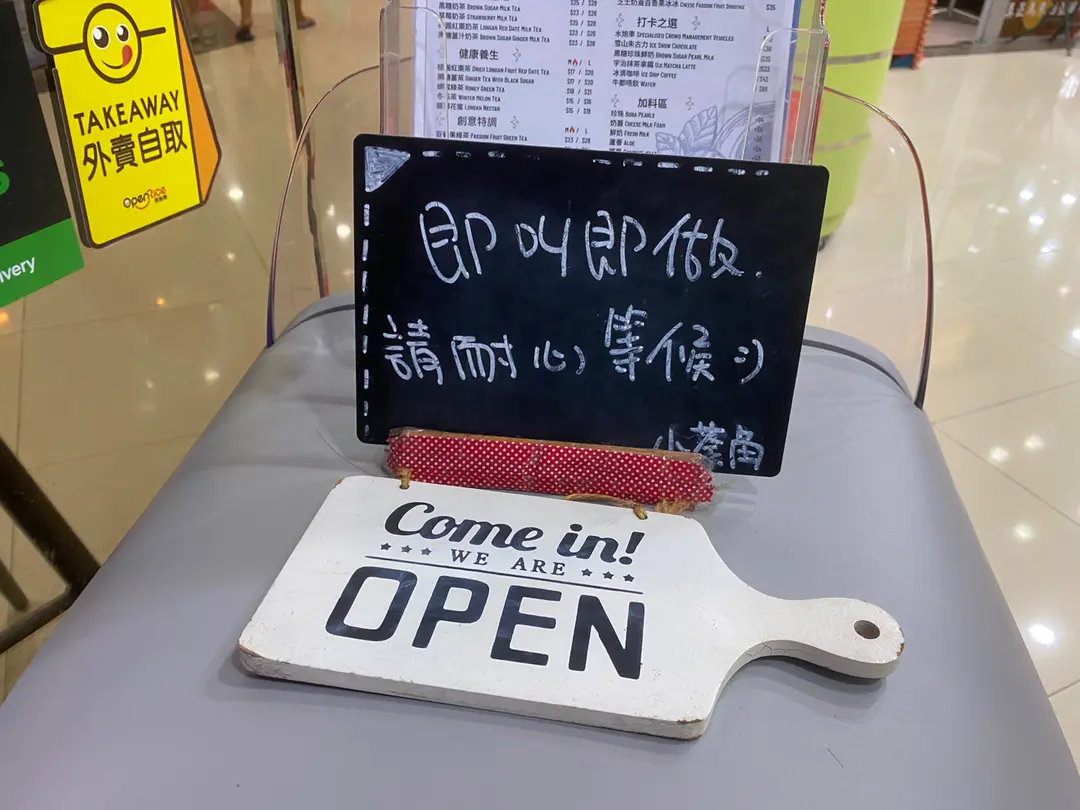 TAKEAWAY
外賣自取
OpenRice
BROWN SUGAR MILK TEA
草莓奶茶 STRAWBERRY MILK TEA
LONGAN RED DATE MILK TEA
BROWN SUGAR GINGER MILK TEA
健康養生
M / L
DRIED LONGAN FRUIT RED DATE TEA
$17 / $20
GINGER TEA WITH BLACK SUGAR
$17 / $20
HONEY GREEN TEA
$18 / $21
WINTER MELON TEA
$15 / $18
LONGAN NECTAR
創意特調
M / L
PASSION FRUIT GREEN TEA
$23 / $26
$35
打卡之選
SPECIALIZED CROWD MANAGEMENT VEHICLES
雪山朱古力 ICE SNOW CHOCOLATE
黑糖珍珠鮮奶 BROWN SUGAR PEARL MILK
宇治抹茶拿鐵 UJI MATCHA LATTE
冰滴咖啡 ICE DROP COFFEE
WATER
加料區
珍珠 BOBA PEARLS
奶蓋 CHEESE MILK FOAM
鮮奶 FRESH MILK
蘆薈 ALOE
即叫即做.
請耐心等候 :)
小茶角
Come in!
WE ARE
OPEN